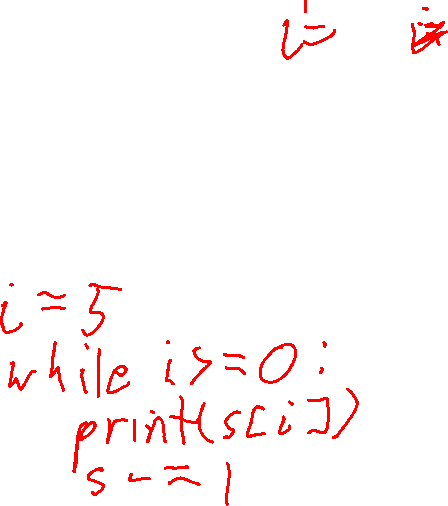 i=
i=5
while i>=0:
print(s[i])
s-=1